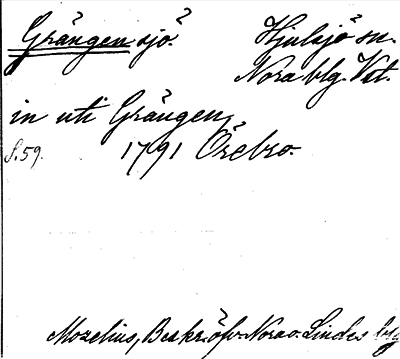 Grängen sjö? Hjulsjö sn.
Nora blg. Vst.
in uti Grängen,
S. 59. 1791 Örebro.
Mozelius, Beskr. öfv. Nora o. Lindes blg